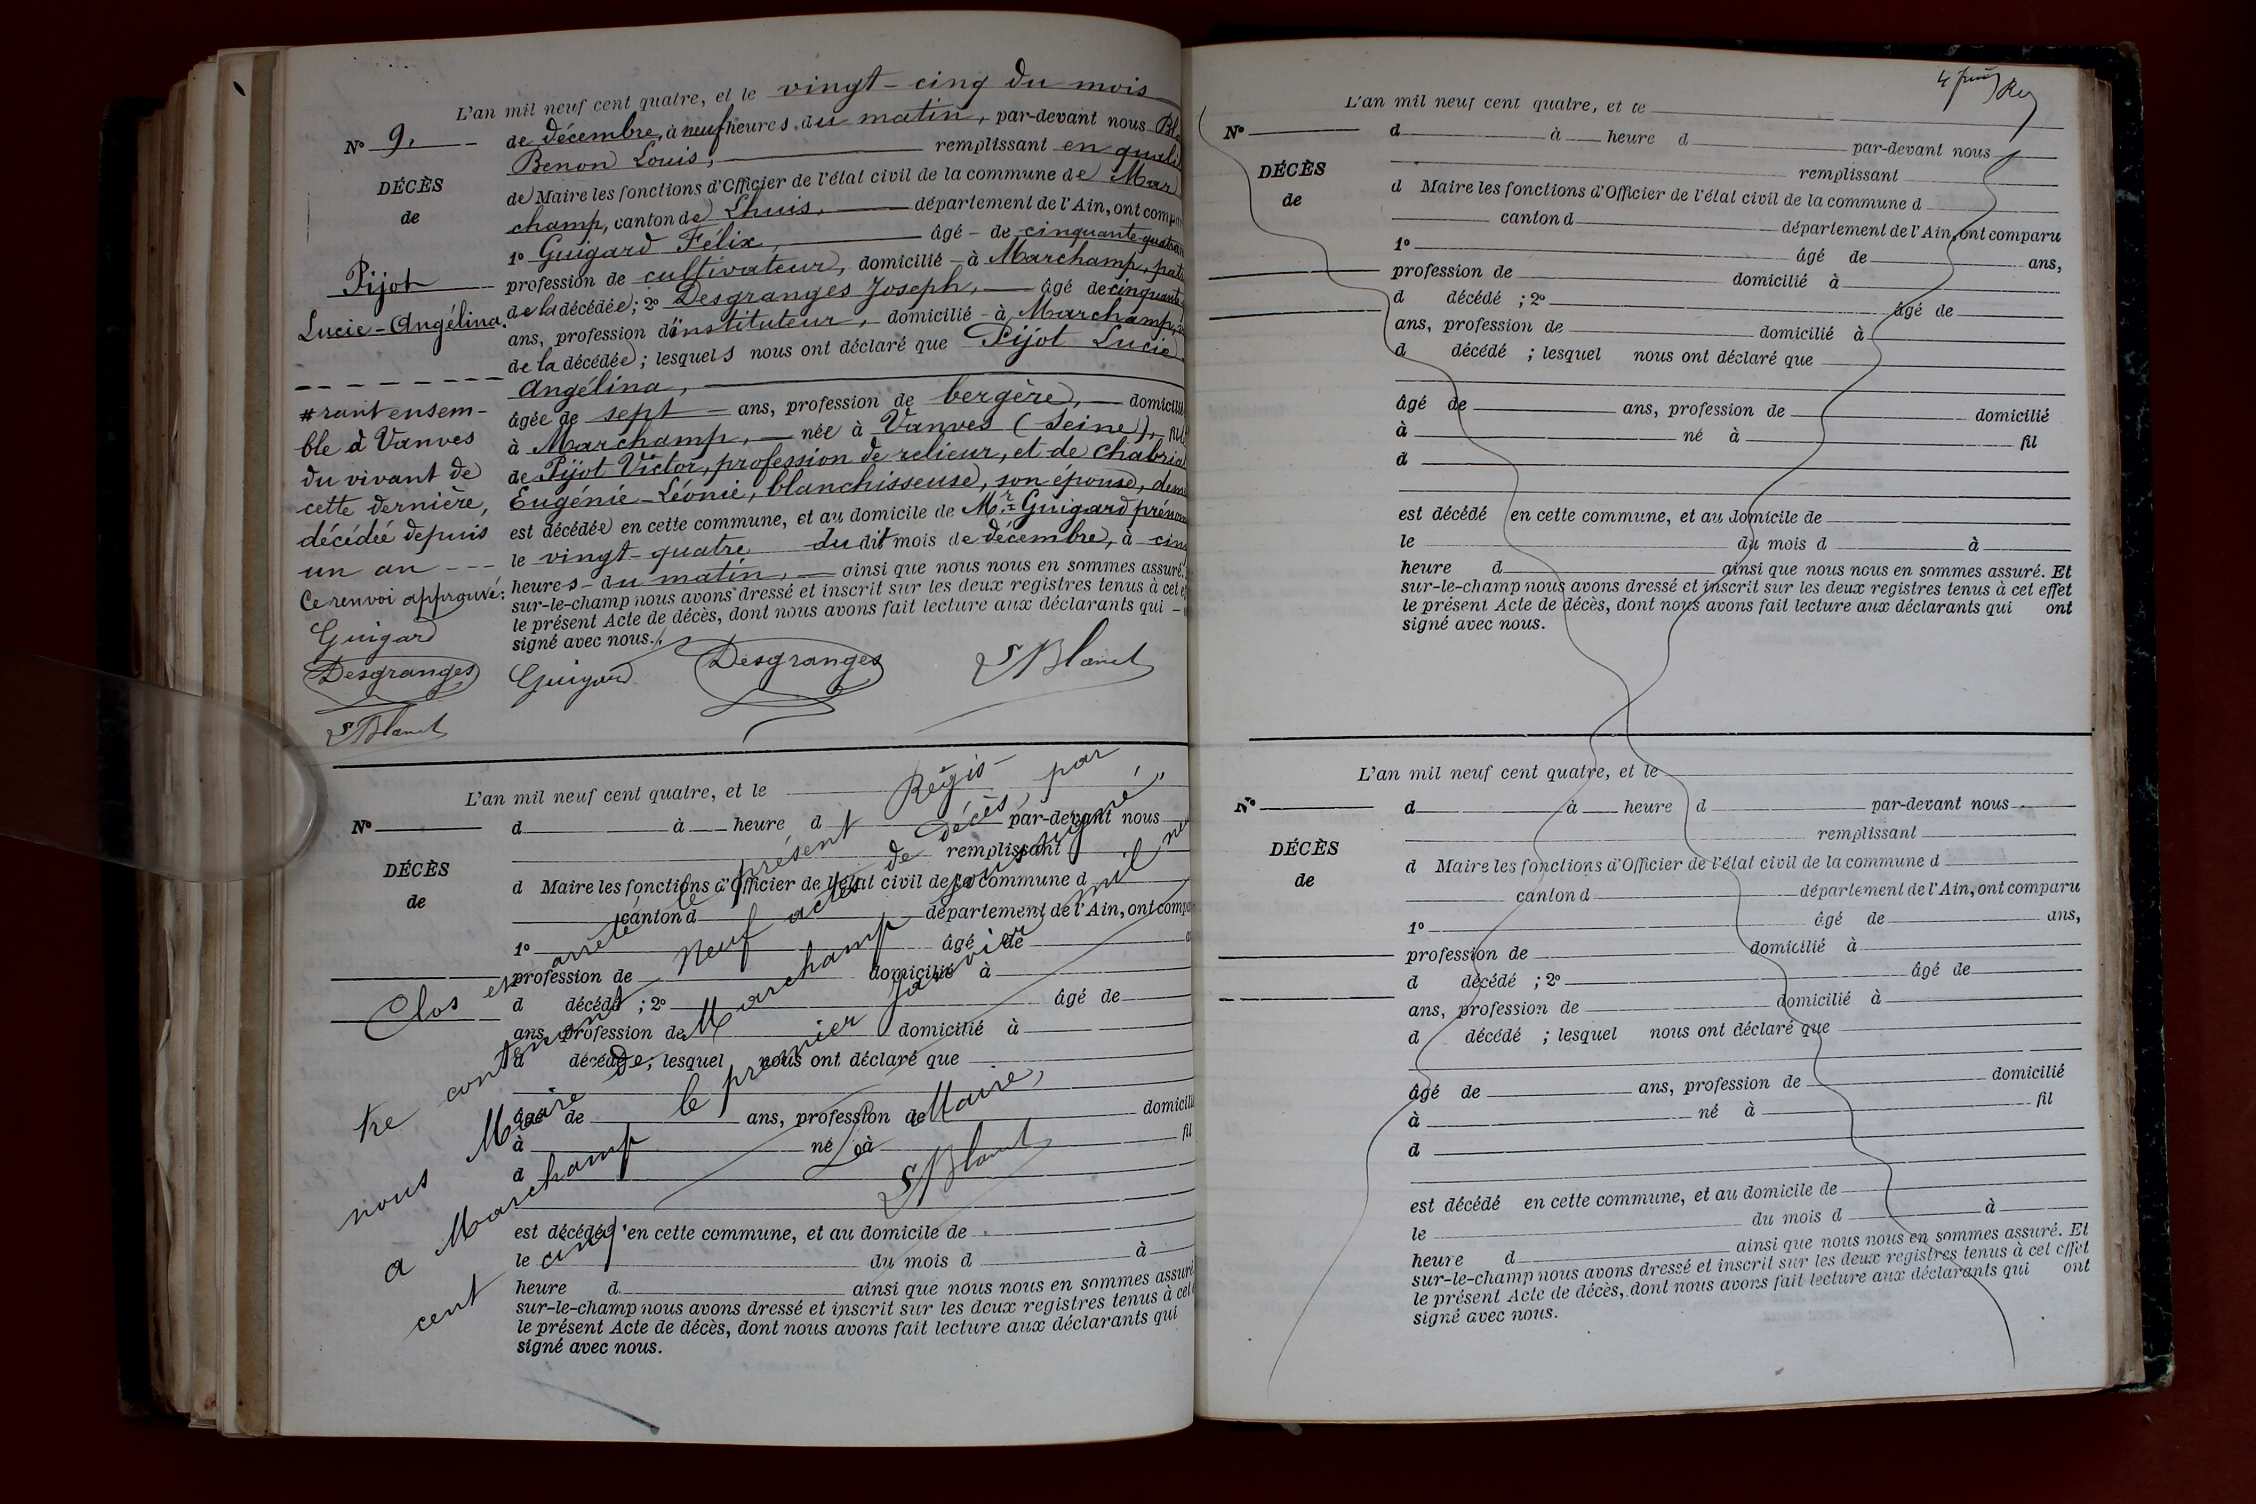 L'an mil neuf cent quatre, et le vingt-cinq du mois
de décembre, à neuf heures du matin, par-devant nous
Benon Louis, remplissant en
de Maire les fonctions d'Officier de l'état civil de la commune de Mar
champ, canton de Lhuis, département de l'Ain, ont
1º Guigard Félix, âgé de
profession de cultivateur, domicilié à Marchamp,
de la décédée ; 2º Desgranges Joseph, âgé de cinquante
ans, profession d'instituteur, domicilié à Marchamp,
de la décédée ; lesquels nous ont déclaré que Pijot Lucie
Angélina,
âgée de sept ans, profession de bergère,
à Marchamp, née à Vanves (Seine),
de Pijot Victor, profession de relieur, et de
Eugénie-Léonie, blanchisseuse, son épouse,
est décédée en cette commune, et au domicile de Mr Guigard
le vingt-quatre du dit mois de décembre, à
heures du matin, ainsi que nous nous en sommes assuré.
sur-le-champ nous avons dressé et inscrit sur les deux registres tenus à cet
le présent Acte de décès, dont nous avons fait lecture aux déclarants qui
signé avec nous.
Guigard Desgranges Blanet
Nº 9.
DÉCÈS
de
Pijot
Lucie-Angélina.
#rant ensem-
ble à Vanves
du vivant de
cette dernière,
décédée depuis
un an
Ce renvoi approuvé:
Guigard
Desgranges
Blanet
L'an mil neuf cent quatre, et le
Nº
d à heure d par-devant nous
DÉCÈS
remplissant
d Maire les fonctions d'Officier de l'état civil de la commune d
de
canton d département de l'Ain, ont
1º âgé de
profession de domicilié à
d décédé ; 2º âgé de
ans, profession de domicilié à
d décédé ; lesquel nous ont déclaré que
âgé de ans, profession de
à né à fil
d
est décédé en cette commune, et au domicile de
le du mois d à
heure d ainsi que nous nous en sommes assuré
sur-le-champ nous avons dressé et inscrit sur les deux registres tenus à cet
le présent Acte de décès, dont nous avons fait lecture aux déclarants qui
signé avec nous.
Clos et arrêté le présent Régis-
tre contenant neuf actes de décès, par
nous Maire de Marchamp soussigné,
a Marchamp le premier janvier mil
cent cinq
Le Maire,
Blanet
4 Rey
L'an mil neuf cent quatre, et le
Nº
d à heure d par-devant nous
DÉCÈS
remplissant
d Maire les fonctions d'Officier de l'état civil de la commune d
de
canton d département de l'Ain, ont comparu
1º âgé de ans,
profession de domicilié à
d décédé ; 2º âgé de
ans, profession de domicilié à
d décédé ; lesquel nous ont déclaré que
âgé de ans, profession de domicilié
à né à fil
d
est décédé en cette commune, et au domicile de
le du mois d à
heure d ainsi que nous nous en sommes assuré. Et
sur-le-champ nous avons dressé et inscrit sur les deux registres tenus à cet effet
le présent Acte de décès, dont nous avons fait lecture aux déclarants qui ont
signé avec nous.
L'an mil neuf cent quatre, et le
Nº
d à heure d par-devant nous
DÉCÈS
remplissant
d Maire les fonctions d'Officier de l'état civil de la commune d
de
canton d département de l'Ain, ont comparu
1º âgé de ans,
profession de domicilié à
d décédé ; 2º âgé de
ans, profession de domicilié à
d décédé ; lesquel nous ont déclaré que
âgé de ans, profession de domicilié
à né à fil
d
est décédé en cette commune, et au domicile de
le du mois d à
heure d ainsi que nous nous en sommes assuré. Et
sur-le-champ nous avons dressé et inscrit sur les deux registres tenus à cet effet
le présent Acte de décès, dont nous avons fait lecture aux déclarants qui ont
signé avec nous.